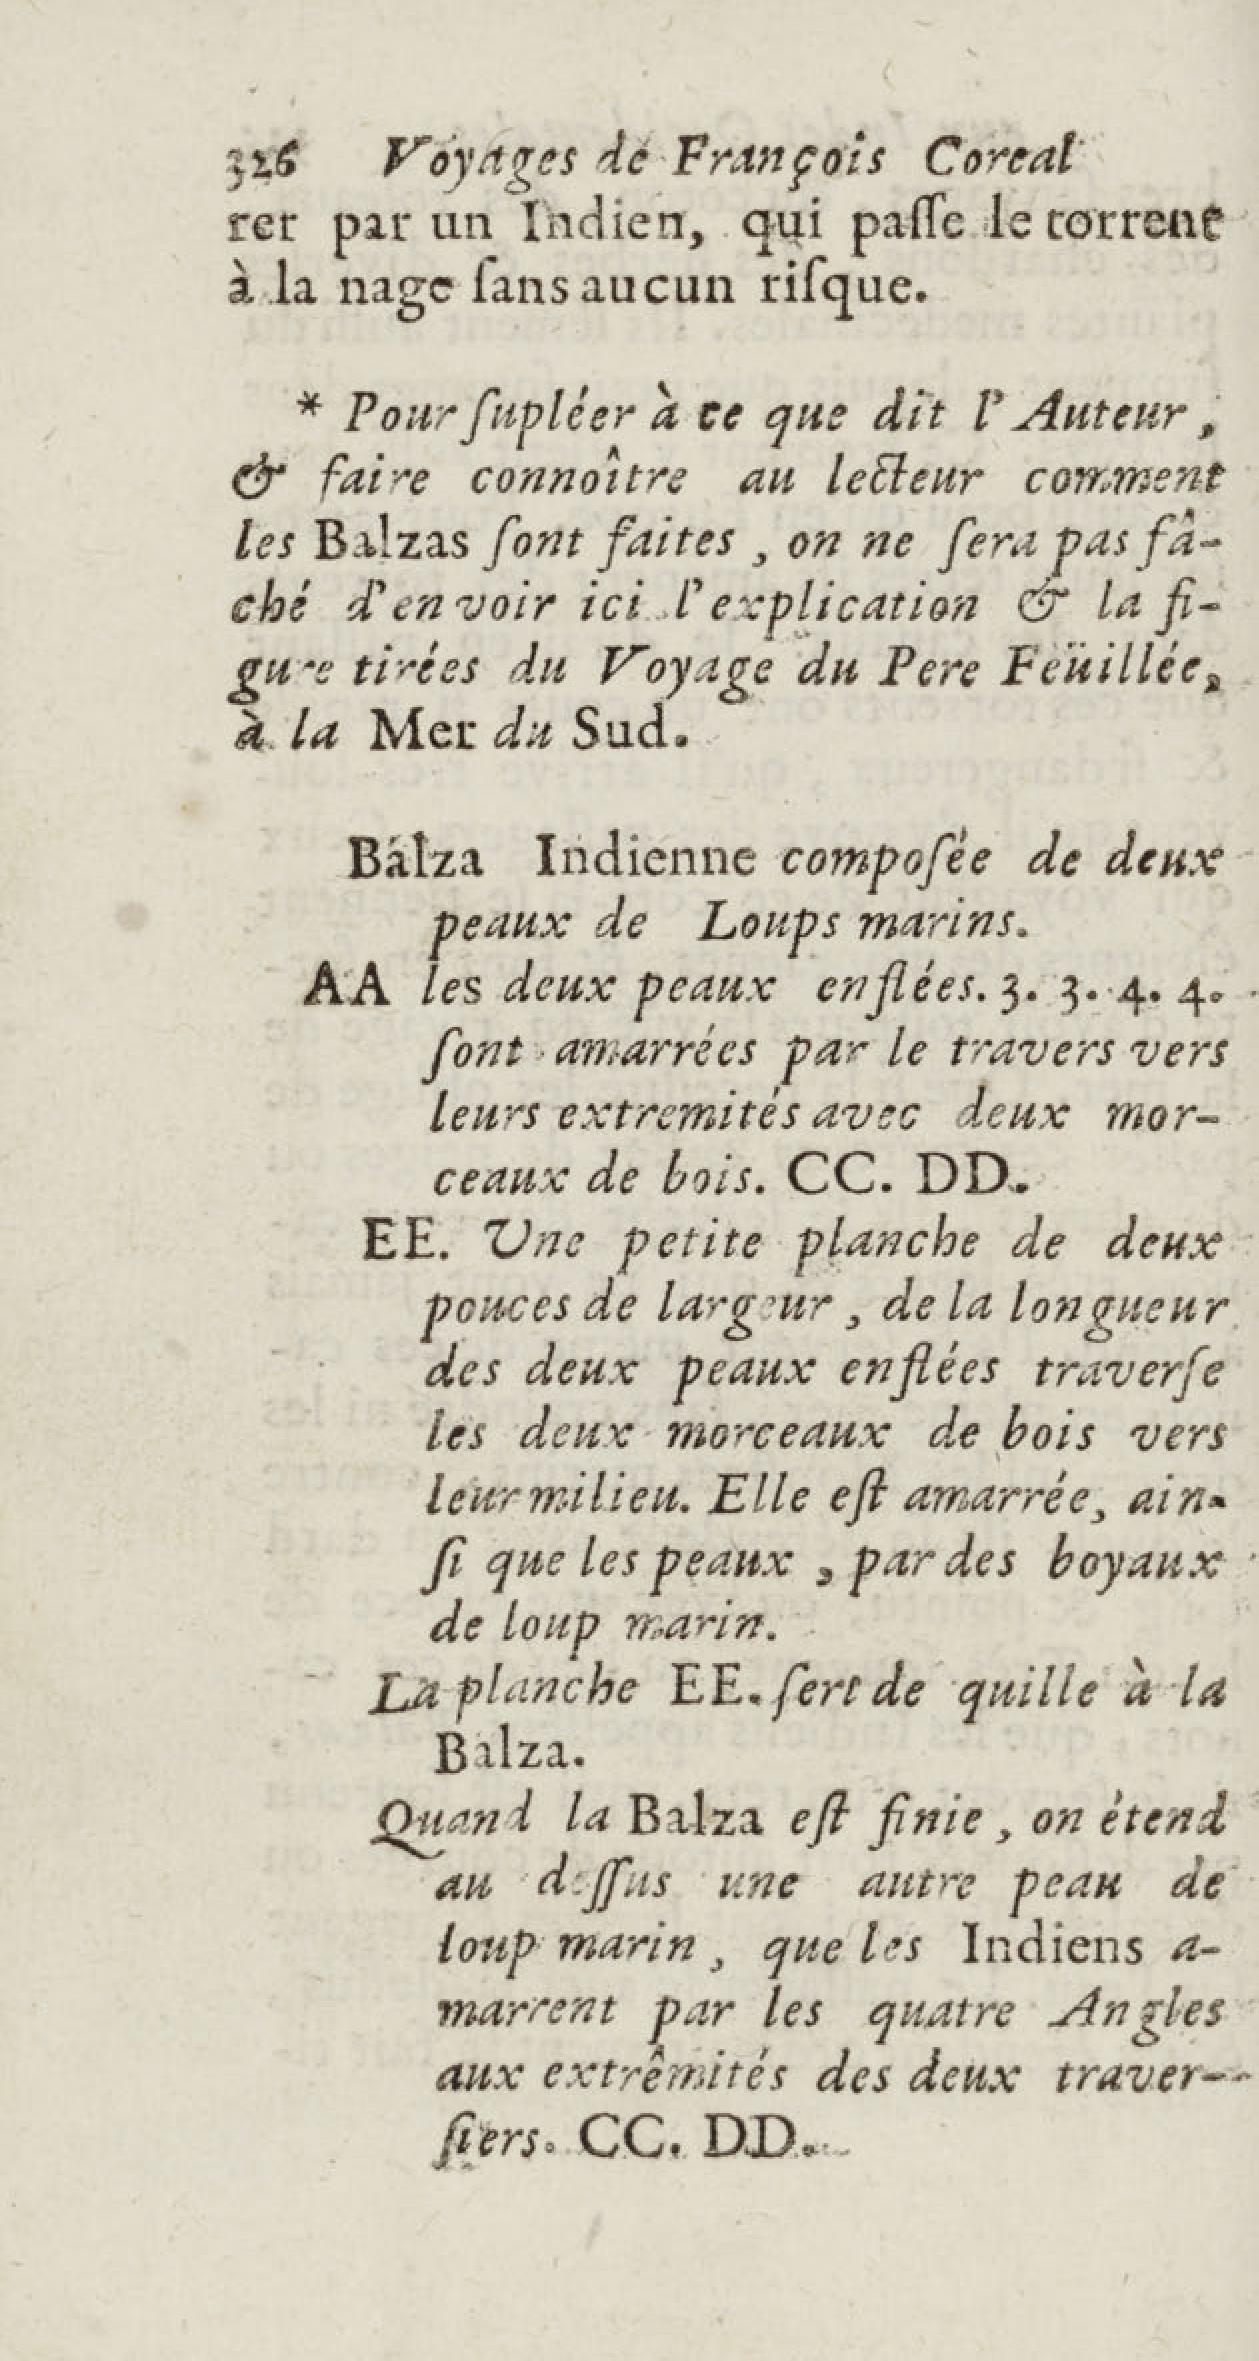 326 Voyages de François Coreal
rer par un Indien, qui paſſe le torrent
à la nage ſans aucun riſque.
* Pour ſupléer à ce que dit l'Auteur,
& faire connoître au lecteur comment
les Balzas ſont faites, on ne ſera pas fâ-
ché d'en voir ici l'explication & la fi-
gure tirées du Voyage du Pere Feüillée,
à la Mer du Sud.
Balza Indienne compoſée de deux
peaux de Loups marins.
AA les deux peaux enflées. 3. 3. 4. 4.
ſont amarrées par le travers vers
leurs extremités avec deux mor-
ceaux de bois. CC. DD.
EE. Une petite planche de deux
pouces de largeur, de la longueur
des deux peaux enflées traverſe
les deux morceaux de bois vers
leur milieu. Elle eſt amarrée, ain-
ſi que les peaux, par des boyaux
de loup marin.
La planche EE. ſert de quille à la
Balza.
Quand la Balza eſt finie, on étend
au deſſus une autre peau de
loup marin, que les Indiens a-
marrent par les quatre Angles
aux extrêmités des deux traver-
ſiers. CC. DD.